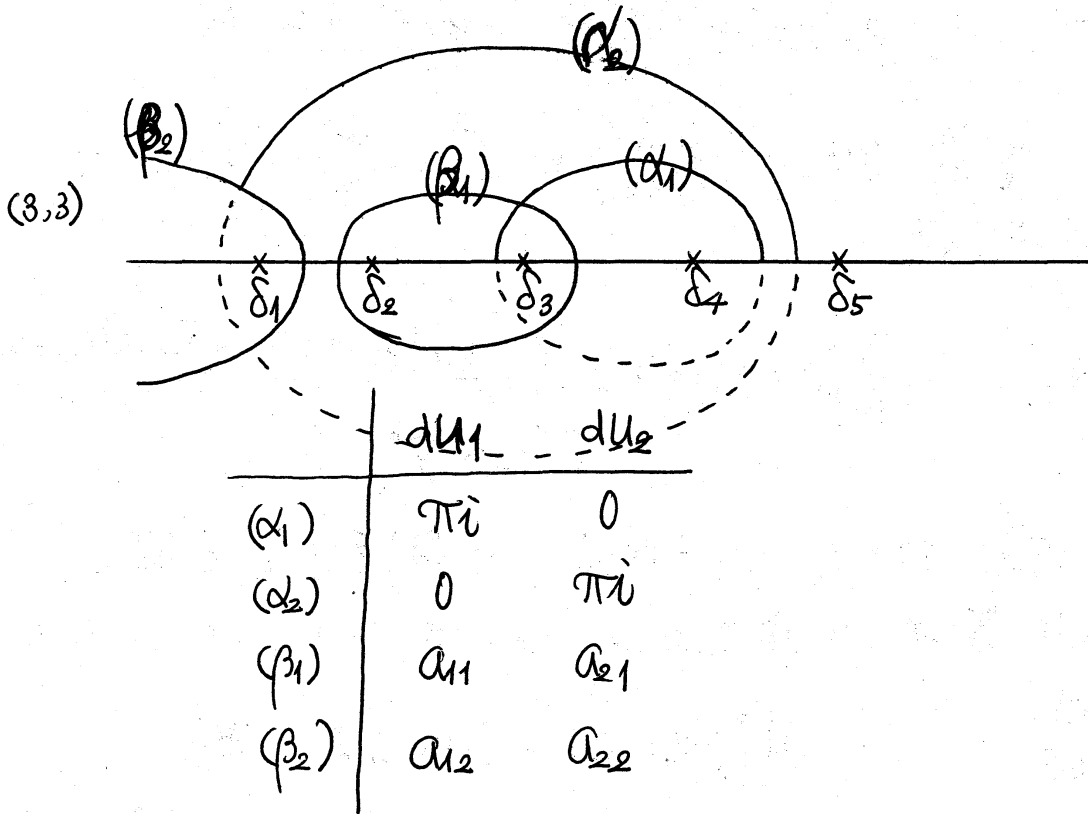 (α₂)
(β₂)
(β₁) (α₁)
(3,3)
δ₁ δ₂ δ₃ δ₄ δ₅
du₁ du₂
(α₁) πi 0
(α₂) 0 πi
(β₁) a₁₁ a₂₁
(β₂) a₁₂ a₂₂